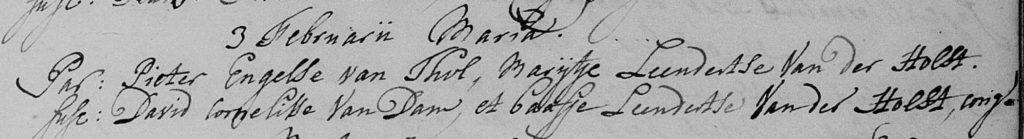 3 Februarii Maria.
Par: Pieter Engelse van Thol, Marijtje Leendertse Van der Holst.
Susc: David Cornelisse Van Dam, et Baatje Leendertse Van der Holst, conj=